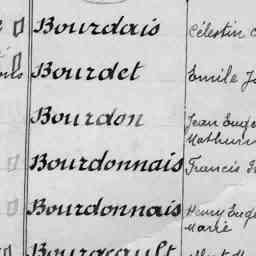 Bourdais Célestin
Bourdet Emile
Bourdon Jean Eugè
Mathurin
Bourdonnais Francis
Bourdonnais Henry Eugè
Marie
Bourgault